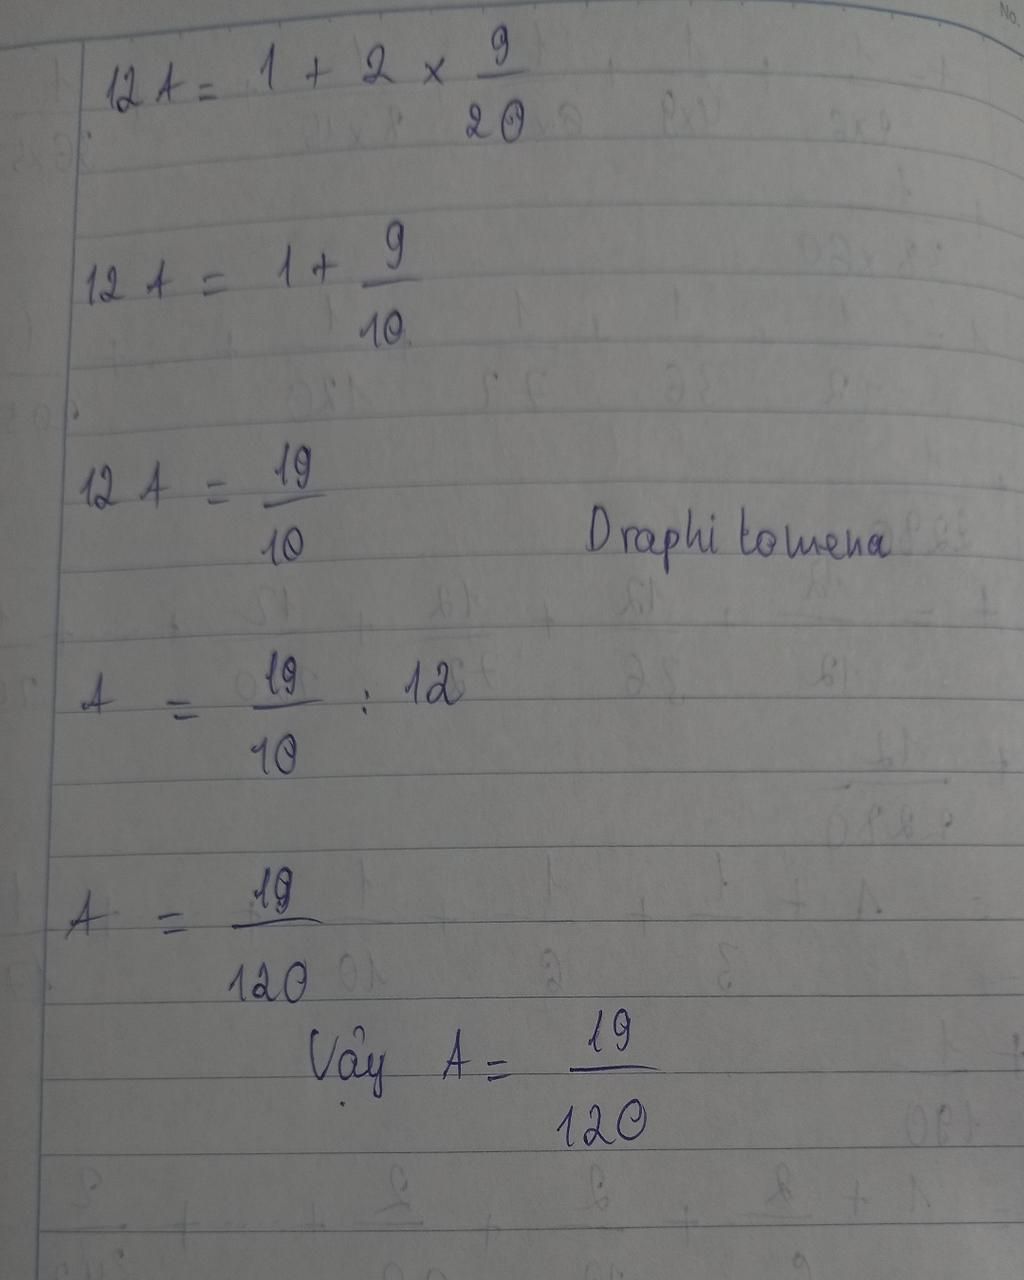 No.
12 A = 1 + 2 × 9/20
12 A = 1 + 9/10
12 A = 19/10
Draphi tomena
A = 19/10 : 12
A = 19/120
Vậy A = 19/120